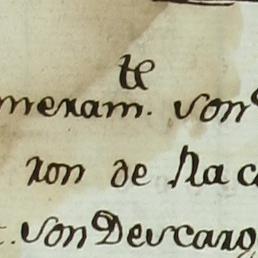 te
meram. son
ron de Nac
. son Descarg